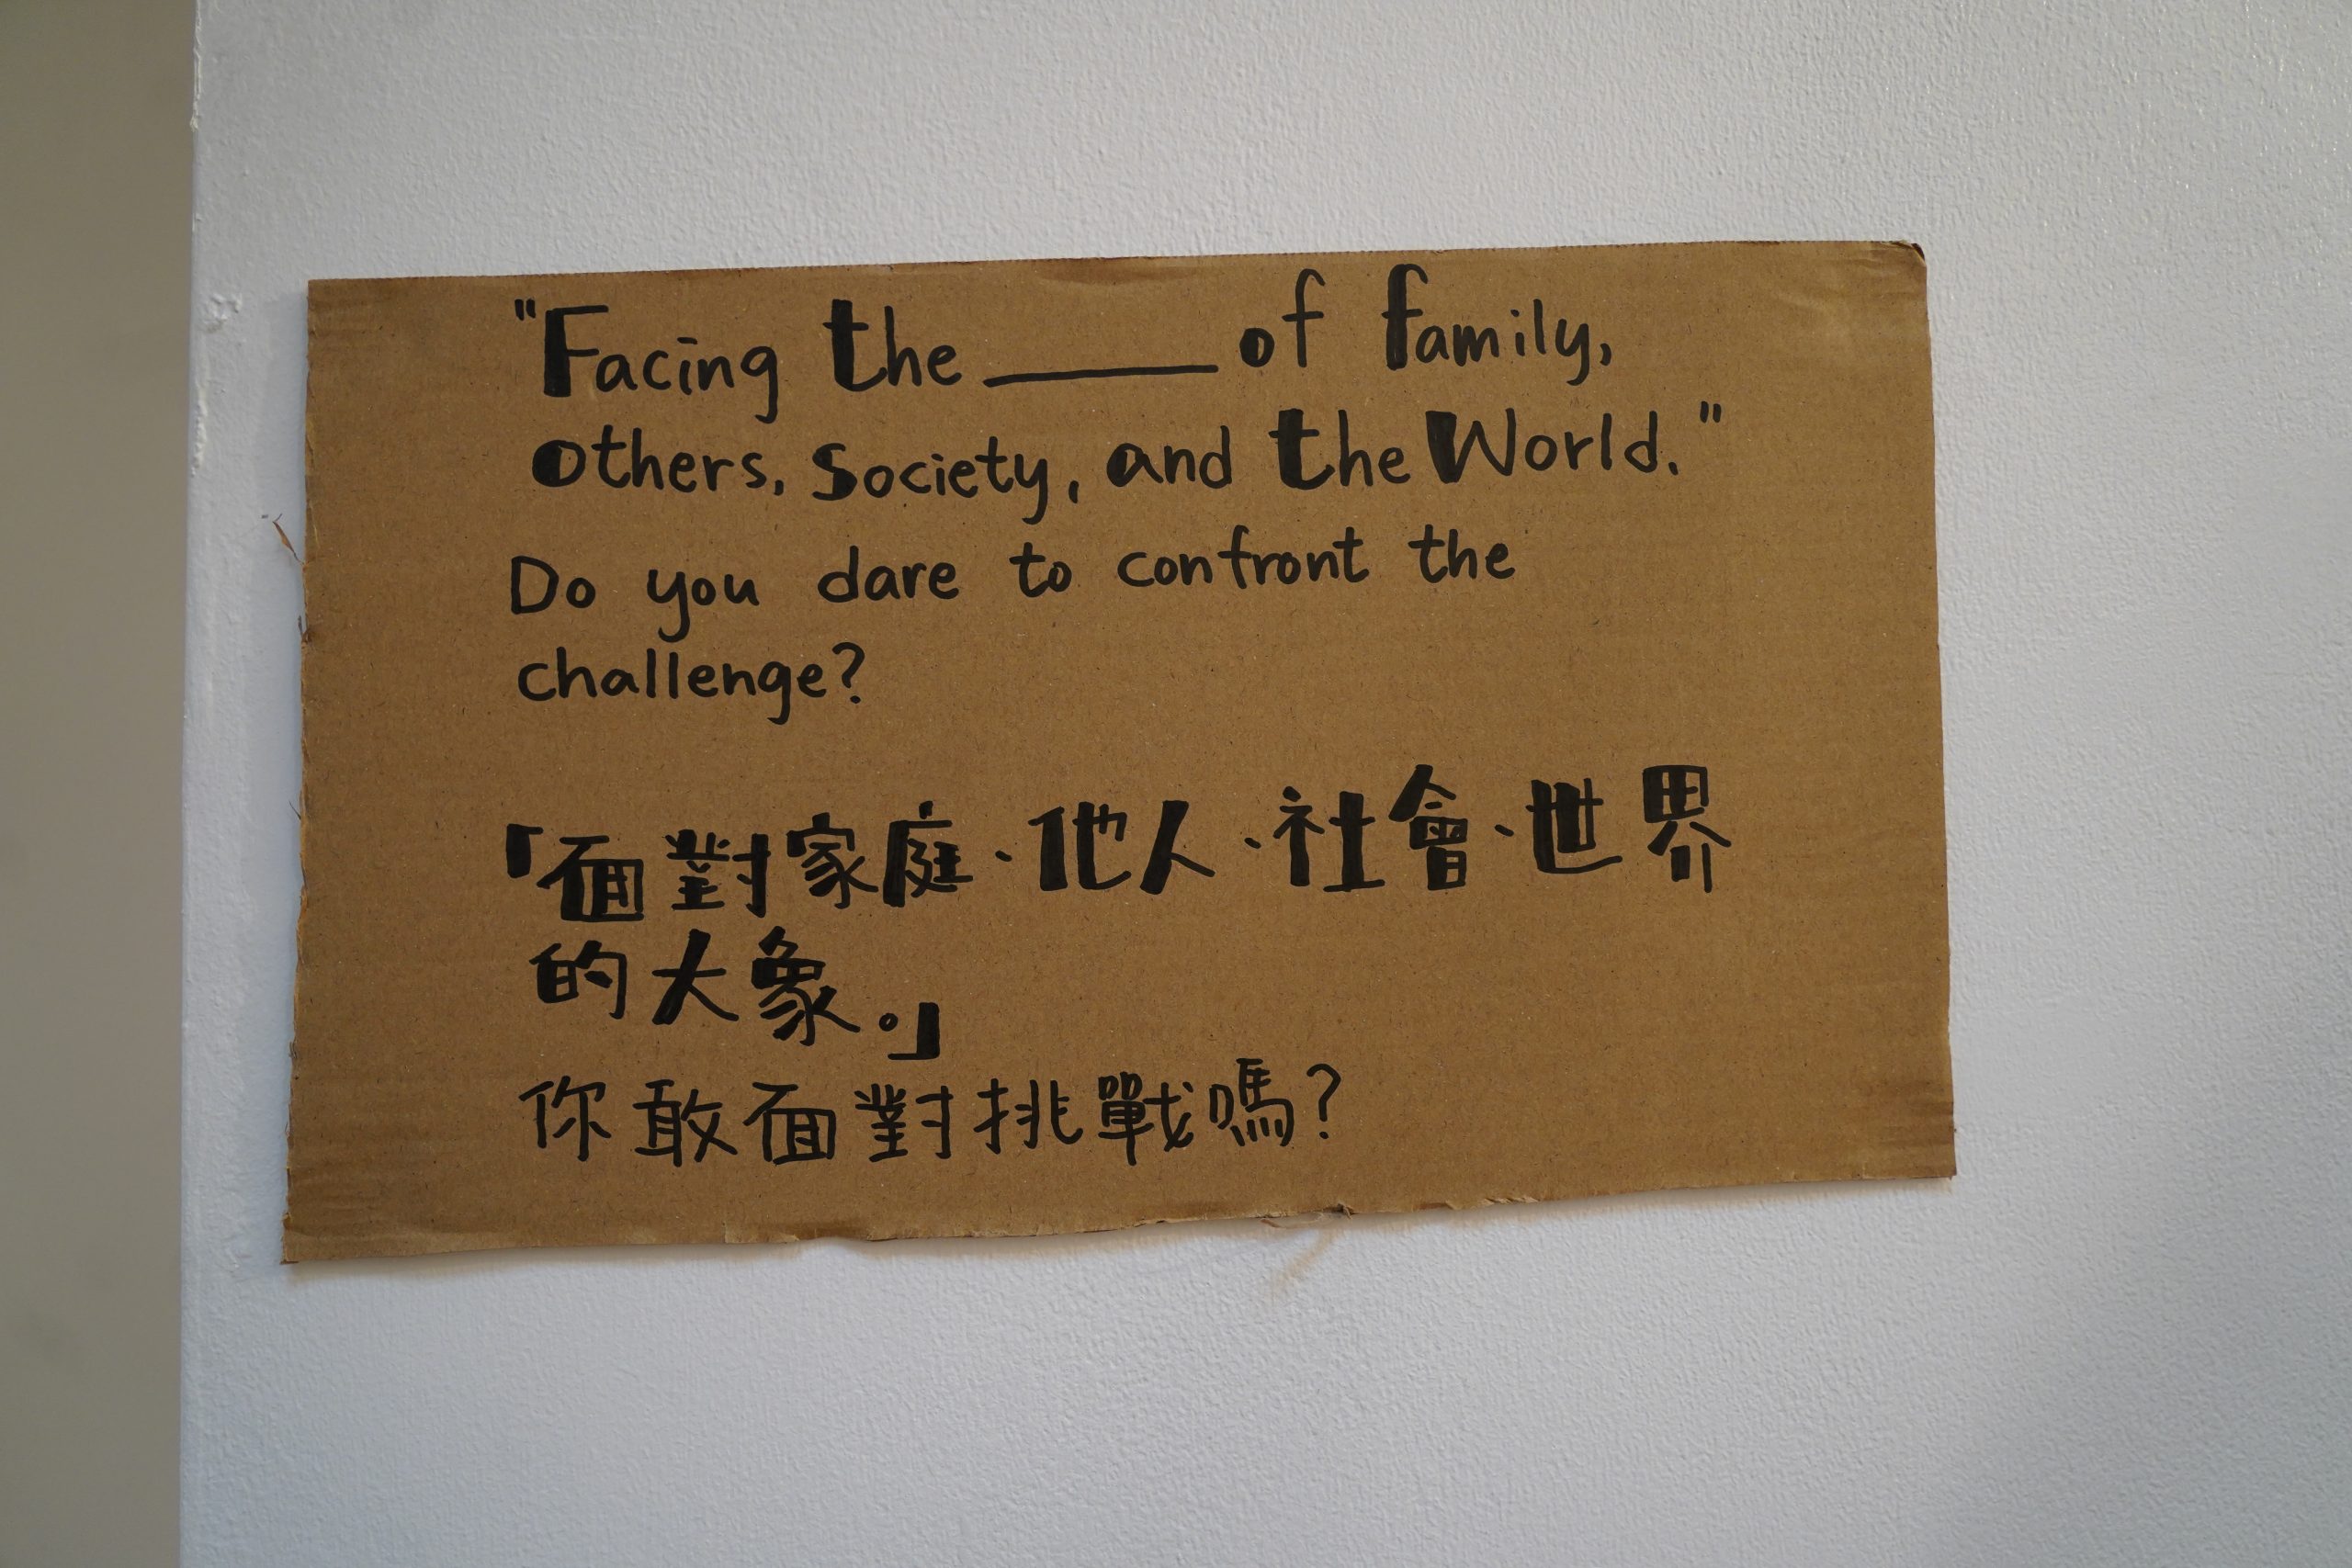 "Facing the ______ of family,
others, society, and the World."
Do you dare to confront the
challenge?
「面對家庭、他人、社會、世界
的大象。」
你敢面對挑戰嗎?